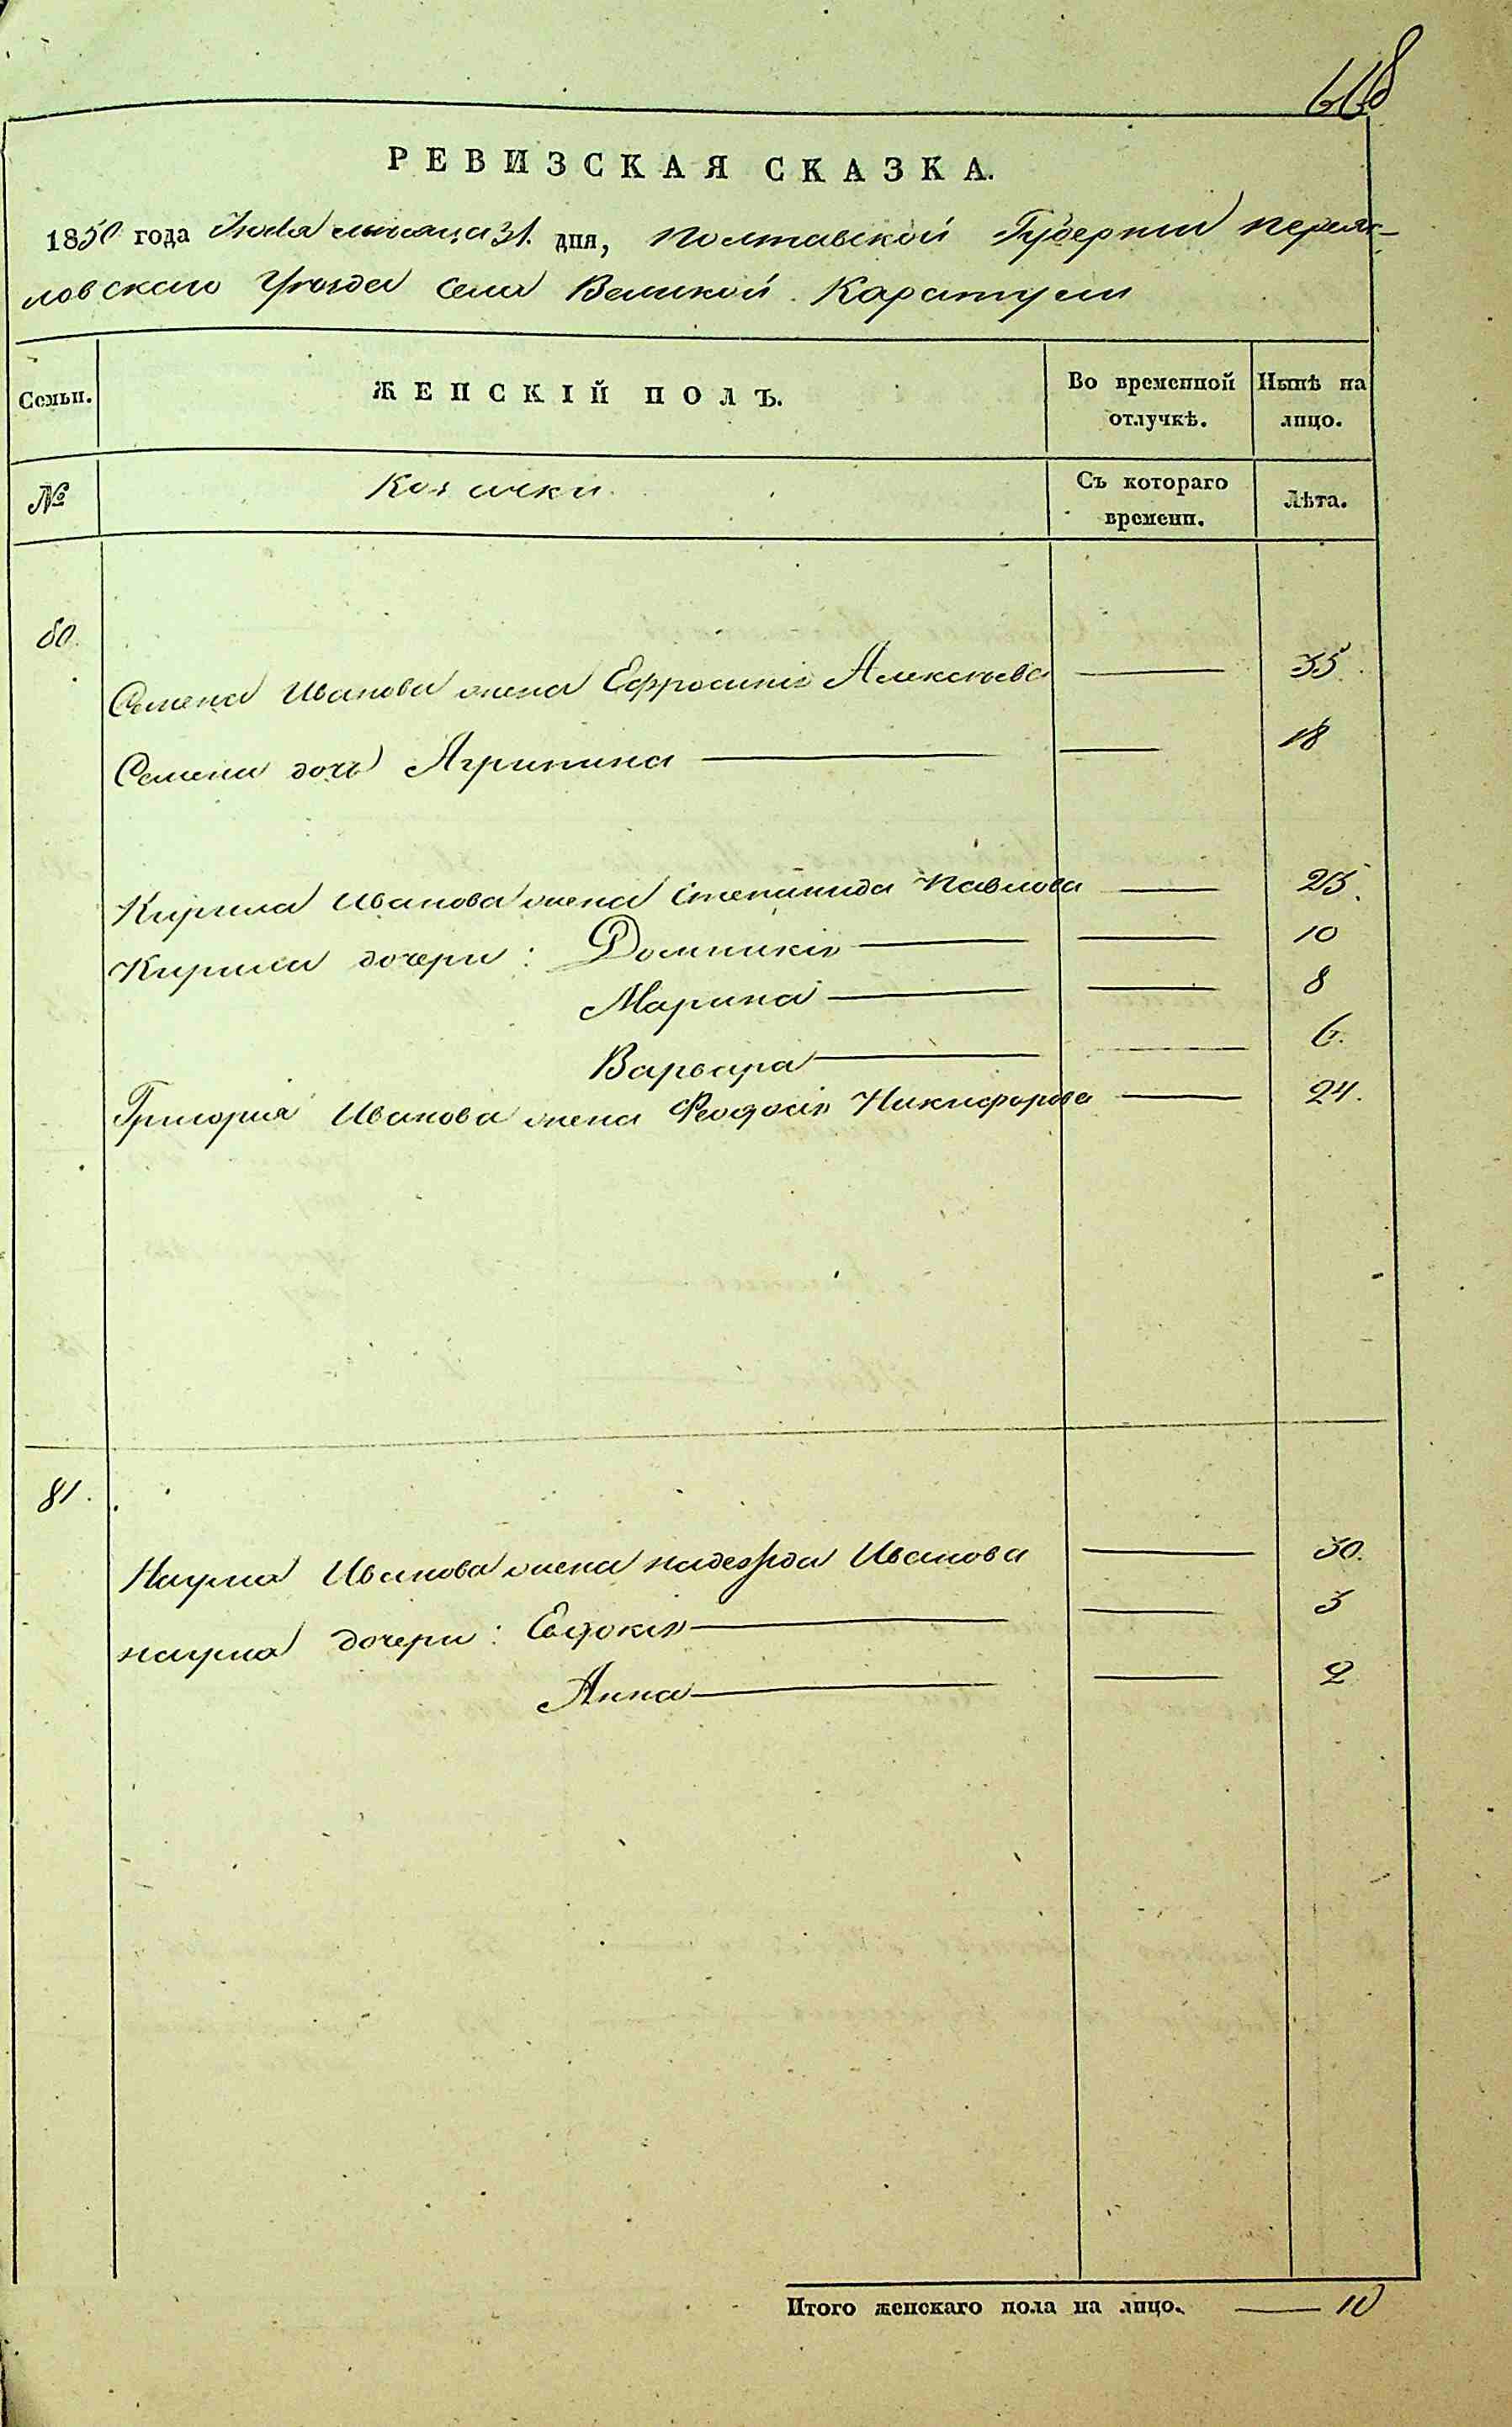 668
РЕВИЗСКАЯ СКАЗКА.
1850 года Июля месяца 31. дня, Полтавской Губернии Переяс-
ловскаго Уезда села Великой Каратули
Семьи.
ЖЕНСКІЙ ПОЛЪ.
Во временной отлучкѣ.
Нынѣ на лицо.
№
Козачки
Съ котораго времени.
Лѣта.
80.
Семена Иванова жена Ефросинія Алексѣева — 35.
Семена дочь Агрипина — 18
Кирила Иванова жена Степанида Павлова — 25.
Кирила дочери: Домникія — 10
Марина — 8
Варвара — 6.
Григорія Иванова жена Феодосія Никифорова — 24.
81.
Наума Иванова жена надежда Иванова — 30.
наума дочери: Евдокія — 3
Анна — 2
Итого женскаго пола на лицо. — 10